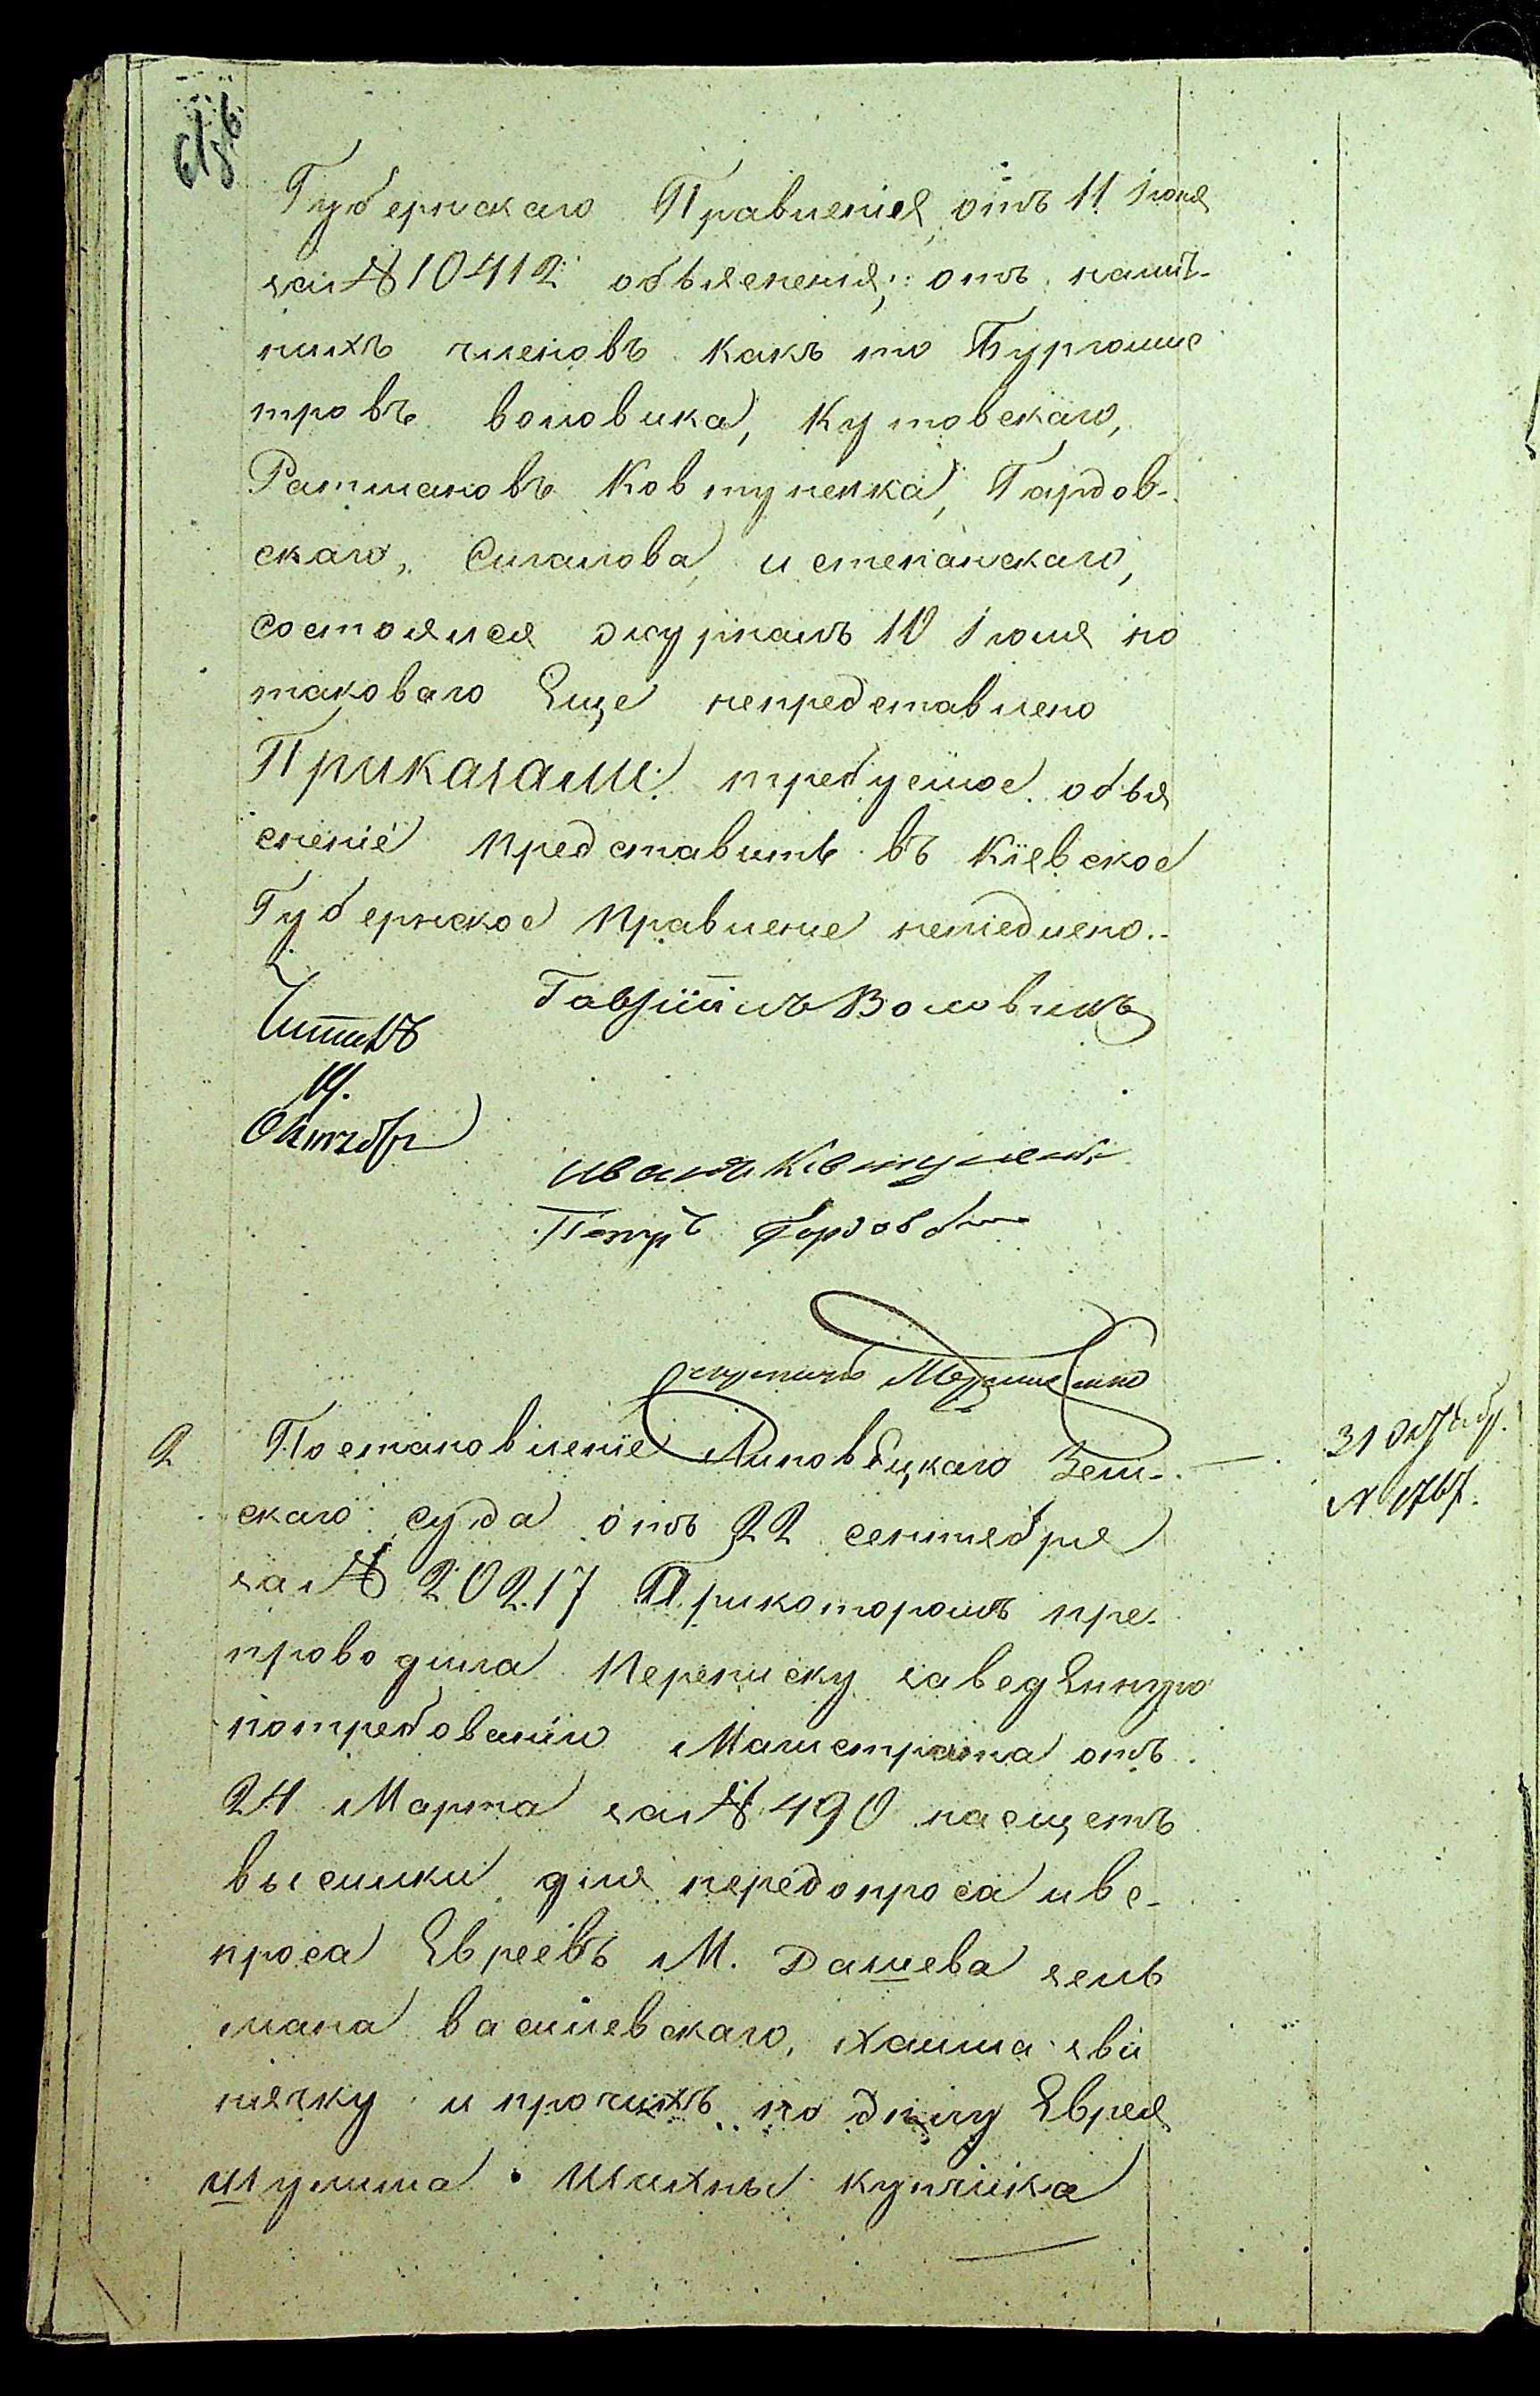 Губернскаго Правленія, отъ 11 Іюня
за № 10412 объясненія; отъ намѣ-
нихъ членовъ какъ то Бургомис
тровъ воловика, Кутовскаго,
Ратмановъ Ковтуненка, Гардов-
скаго, Сигалова, и степанскаго,
состоялся журналъ 10 Іюля но
таковаго Еще непредставлено
Приказали: требуемое объя
сненіе представить въ Кіевское
Губернское Правление немедлено.
Гавріилъ Воловикъ
Читалъ
19.
Октября
Иванъ Ковтуненко
Петръ Гардовский
Секретарь
2
Постановленіе Липовецкаго Зем-
31 октябр.
скаго суда отъ 22 сентебря
№ 1767.
за № 20217 Прикоторомъ пре-
проводила Переписку заведенную
потребованію Магистрата отъ
24 Марта за № 490 насщетъ
высилки для передопроса иве-
проса Евреевъ М. Дашева зель
мана василевскаго, Хаима зви
нячку и прочихъ по дѣлу Еврея
Шулима Шихны купчика